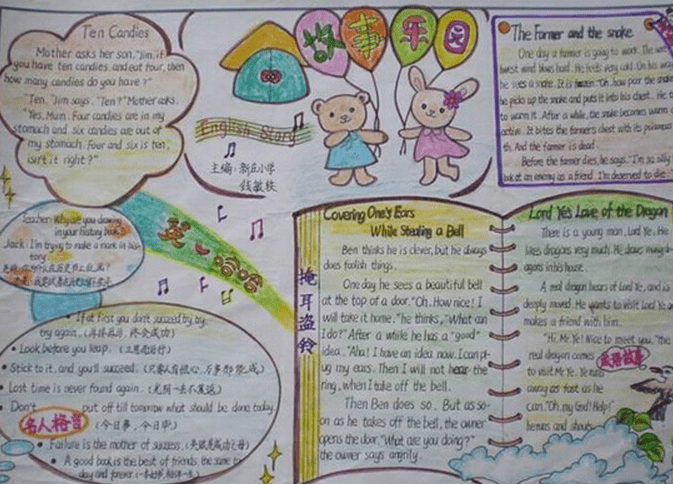 Ten Candies
Mother asks her son, "Jim, if
you have ten candies, and eat four, then
how many candies do you have?"
"Ten," Jim says. "Ten?" Mother asks.
Yes, Mum. Four candies are in my
stomach and six candies are out of
my stomach. Four and six is ten,
isn't it right?"
故事乐园
English Story
主编:新庄小学
钱敏轶
The Farmer and the snake
One day a farmer is going to work. The
west wind blows hard. He feels very cold. On his way
he sees a snake. It is frozen. "Oh, how poor the snake
he picks up the snake and puts it into his chest. He
to warm it. After a while, the snake becomes warm
active. It bites the farmer's chest with its poisonous
th. And the farmer is dead.
Before the farmer dies, he says. "I'm so silly
look at an enemy as a friend. I'm deserved to die
Teacher: Why are you drawing
in your history book
Jack: I'm trying to make a mark in his
tory
英 哈哈
If at first you don't succeed, try, try,
try again. (再接再历,终会成功)
Look before you leap. (三思而后行)
Stick to it, and you'll succeed. (只要人有恒心,万事都能成)
Lost time is never found again. (光阴一去不复返)
Don't put off till tomorrow what should be done today.
名人格言 (今日事,今日毕)
Failure is the mother of success. (失败是成功之母)
A good book is the best of friends the same to
day and forever.
掩耳盗铃
Covering One's Ears
While Stealing a Bell
Ben thinks he is clever, but he always
does foolish things.
One day he sees a beautiful bell
at the top of a door. "Oh, How nice! I
will take it home," he thinks, "What can
I do?" After a while he has a "good"
idea. "Aha! I have an idea now. I can pl-
ug my ears. Then I will not hear the
ring, when I take off the bell.
Then Ben does so. But as so-
on as he takes off the bell, the owner
opens the door, "What are you doing?"
the owner says angrily.
Lord Ye's Love of the Dragon
There is a young man, Lord Ye. He
likes dragons very much. He draws many dr-
agons in his house.
A real dragon hears of Lord Ye, and is
deeply moved. He wants to visit Lord Ye an
makes a friend with him.
"Hi, Mr Ye! Nice to meet you," the
real dragon comes 成语故事
to visit Mr Ye. Ye runs
away as fast as he
can. "Oh, my God! Help!"
he runs and shouts.